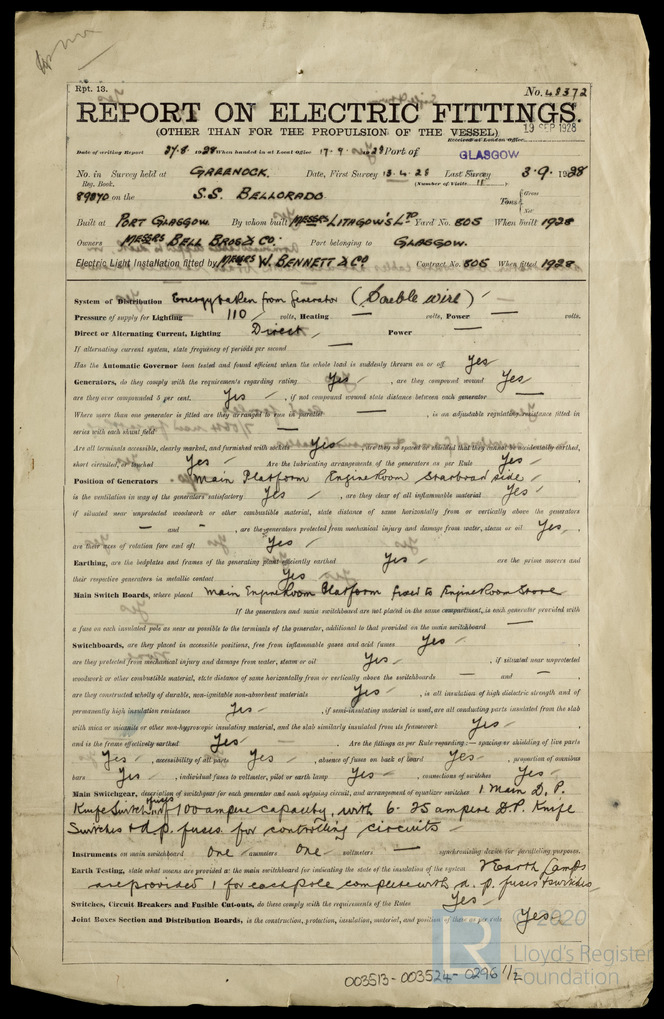 Rpt. 13.
No. 48372
REPORT ON ELECTRIC FITTINGS.
(OTHER THAN FOR THE PROPULSION OF THE VESSEL)
Received at London Office 19 SEP 1928
Date of writing Report 27.8 1928 When handed in at Local Office 17.9.1928 Port of GLASGOW
No. in Survey held at GREENOCK. Date, First Survey 13.4.28 Last Survey 3.9.1928
Reg. Book. (Number of Visits 11)
89870 on the S.S. BELLORADO Tons { Gross
Net
Built at PORT GLASGOW. By whom built MESSRS LITHGOW'S LTD Yard No. 805 When built 1928
Owners MESSRS BELL BROS & CO. Port belonging to GLASGOW.
Electric Light Installation fitted by MESSRS W. BENNETT & CO Contract No. 805 When fitted 1928
System of Distribution Energy taken from Generator (Double wire)
Pressure of supply for Lighting 110 volts, Heating — volts, Power — volts.
Direct or Alternating Current, Lighting Direct Power —
If alternating current system, state frequency of periods per second —
Has the Automatic Governor been tested and found efficient when the whole load is suddenly thrown on or off Yes
Generators, do they comply with the requirements regarding rating Yes, are they compound wound Yes
are they over compounded 5 per cent. Yes, if not compound wound state distance between each generator —
Where more than one generator is fitted are they arranged to run in parallel —, is an adjustable regulating resistance fitted in
series with each shunt field —
Are all terminals accessible, clearly marked, and furnished with sockets Yes, are they so spaced or shielded that they cannot be accidentally earthed,
short circuited, or touched Yes Are the lubricating arrangements of the generators as per Rule Yes
Position of Generators Main Platform Engine Room Starboad side
is the ventilation in way of the generators satisfactory Yes, are they clear of all inflammable material Yes
if situated near unprotected woodwork or other combustible material, state distance of same horizontally from or vertically above the generators
— and —, are the generators protected from mechanical injury and damage from water, steam or oil Yes,
are their axes of rotation fore and aft Yes
Earthing, are the bedplates and frames of the generating plant efficiently earthed Yes are the prime movers and
their respective generators in metallic contact Yes
Main Switch Boards, where placed Main Engine Room Platform fixed to Engine Room Store
If the generators and main switchboard are not placed in the same compartment, is each generator provided with
a fuse on each insulated pole as near as possible to the terminals of the generator, additional to that provided on the main switchboard —
Switchboards, are they placed in accessible positions, free from inflammable gases and acid fumes Yes,
are they protected from mechanical injury and damage from water, steam or oil Yes, if situated near unprotected
woodwork or other combustible material, state distance of same horizontally from or vertically above the switchboards — and —,
are they constructed wholly of durable, non-ignitable non-absorbent materials Yes, is all insulation of high dielectric strength and of
permanently high insulation resistance Yes, if semi-insulating material is used, are all conducting parts insulated from the slab
with mica or micanite or other non-hygroscopic insulating material, and the slab similarly insulated from its framework Yes,
and is the frame effectively earthed Yes. Are the fittings as per Rule regarding:— spacing or shielding of live parts
Yes, accessibility of all parts Yes, absence of fuses on back of board Yes, proportion of omnibus
bars Yes, individual fuses to voltmeter, pilot or earth lamp Yes, connections of switches Yes
Main Switchgear, description of switchgear for each generator and each outgoing circuit, and arrangement of equalizer switches 1 Main D.P.
Knife Switch & fuses of 100 ampere capacity, with 6-25 ampere D.P. Knife
Switches & d.p. fuses for controlling circuits
Instruments on main switchboard One ammeters One voltmeters — synchronizing device for paralleling purposes.
Earth Testing, state what means are provided at the main switchboard for indicating the state of the insulation of the system 2 Earth Lamps
are provided 1 for each pole complete with d.p. fuses & switches
Switches, Circuit Breakers and Fusible Cut-outs, do these comply with the requirements of the Rules Yes
Joint Boxes Section and Distribution Boards, is the construction, protection, insulation, material, and position of these as per rule Yes.
© 2020
Lloyd's Register
Foundation
003513-003524-0296 1/2